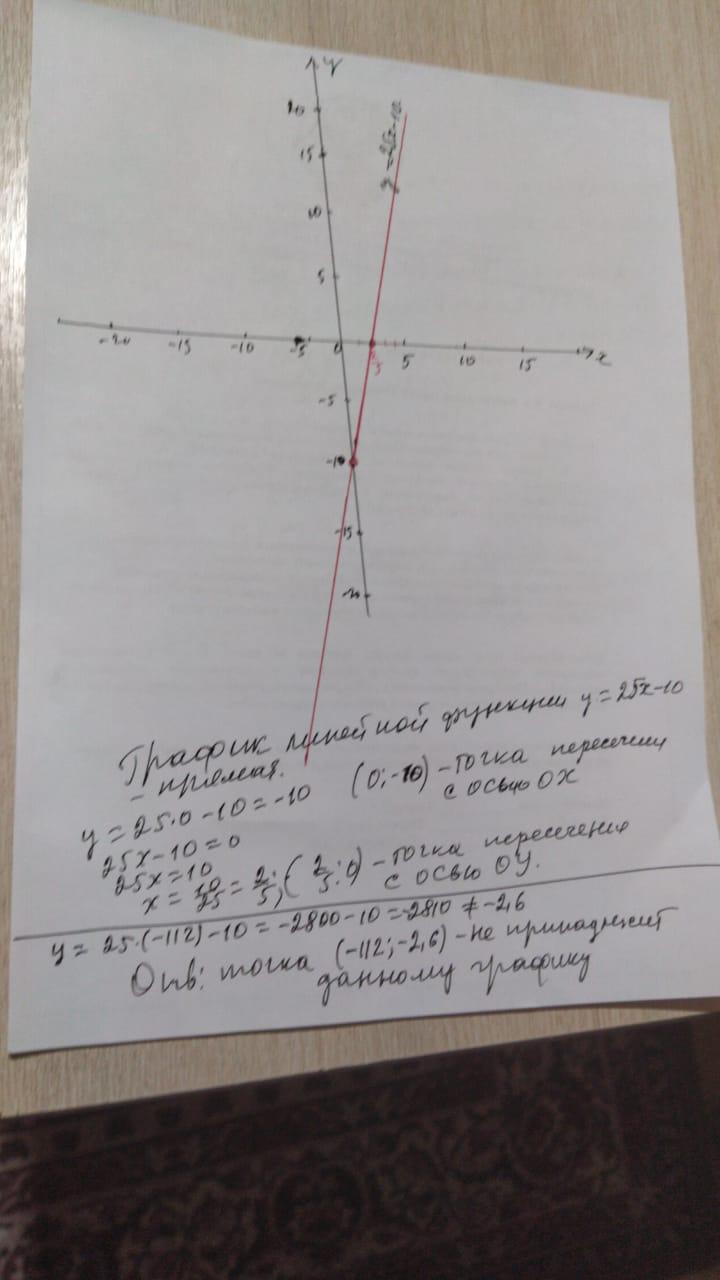 y
20
15
10
5
y = 25x-10
-20 -15 -10 -5 0 2/5 5 10 15 x
-5
-10
-15
-20
График линейной функции y = 25x-10
- прямая.
y = 25·0-10 = -10 (0;-10) - точка пересечения
с осью OX
25x-10=0
25x=10
x = 10/25 = 2/5; (2/5; 0) - точка пересечения
с осью OY.
y = 25·(-112)-10 = -2800-10 = -2810 ≠ -2,6
Отв: точка (-112; -2,6) - не принадлежит
данному графику